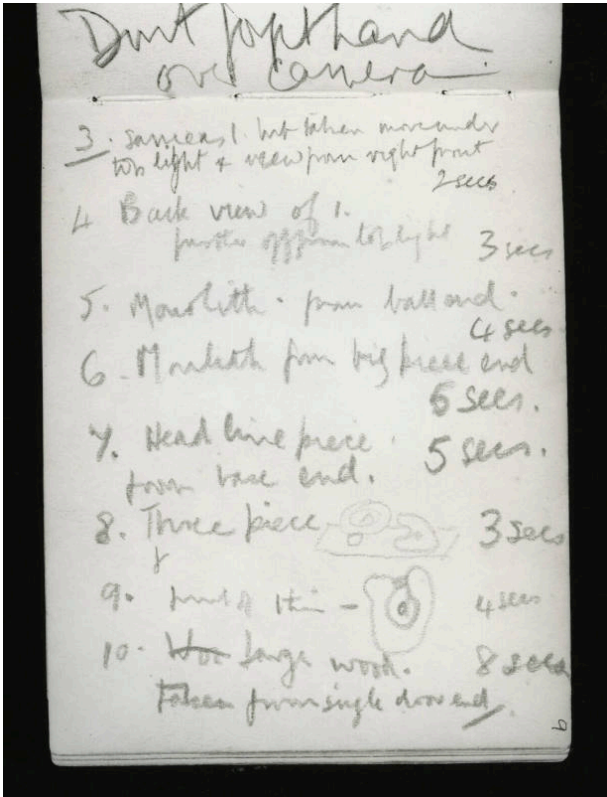 Dont
over camera.
3. same as 1. but taken more under
top light & view from right front
2 secs
4 Back view of 1.
further off from top light 3 secs
5. Monolith - from ball end.
4 secs.
6. Monolith from big piece end
5 secs.
7. Head line piece.
from base end. 5 secs.
8. Three piece 3 secs
9. front of thin - 4 secs
10. large wood. 8 secs
Taken from single door end.
9